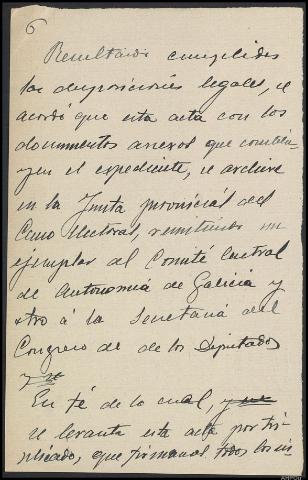 6
Resultando cumplidas
las disposiciones legales, se
acordó que esta acta con los
documentos anexos que constitu-
yen el expediente, se archive
en la Junta provincial del
Censo electoral, remitiendo un
ejemplar al Comité Central
de Autonomía de Galicia y
otro á la Secretaría del
Congreso de de los Diputados
y se
En fé de lo cual, y que
se levanta esta acta por tri-
plicado, que firman